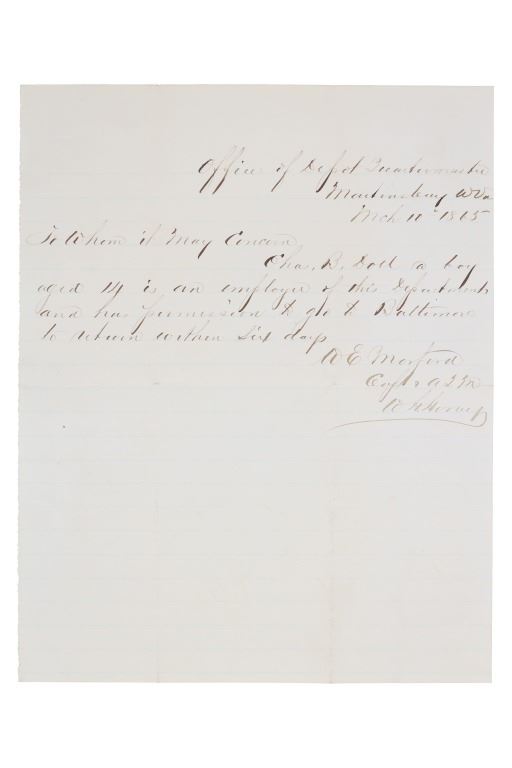 Office of Depot Quartermaster
Martinsburg W Va
Mch 10" 1865
To Whom it May Concern
Chas. B. Doll a boy
aged 14 is an employee of this Department
and has permission to go to Baltimore
to return within Six days
W E Morford
Capt & AQM